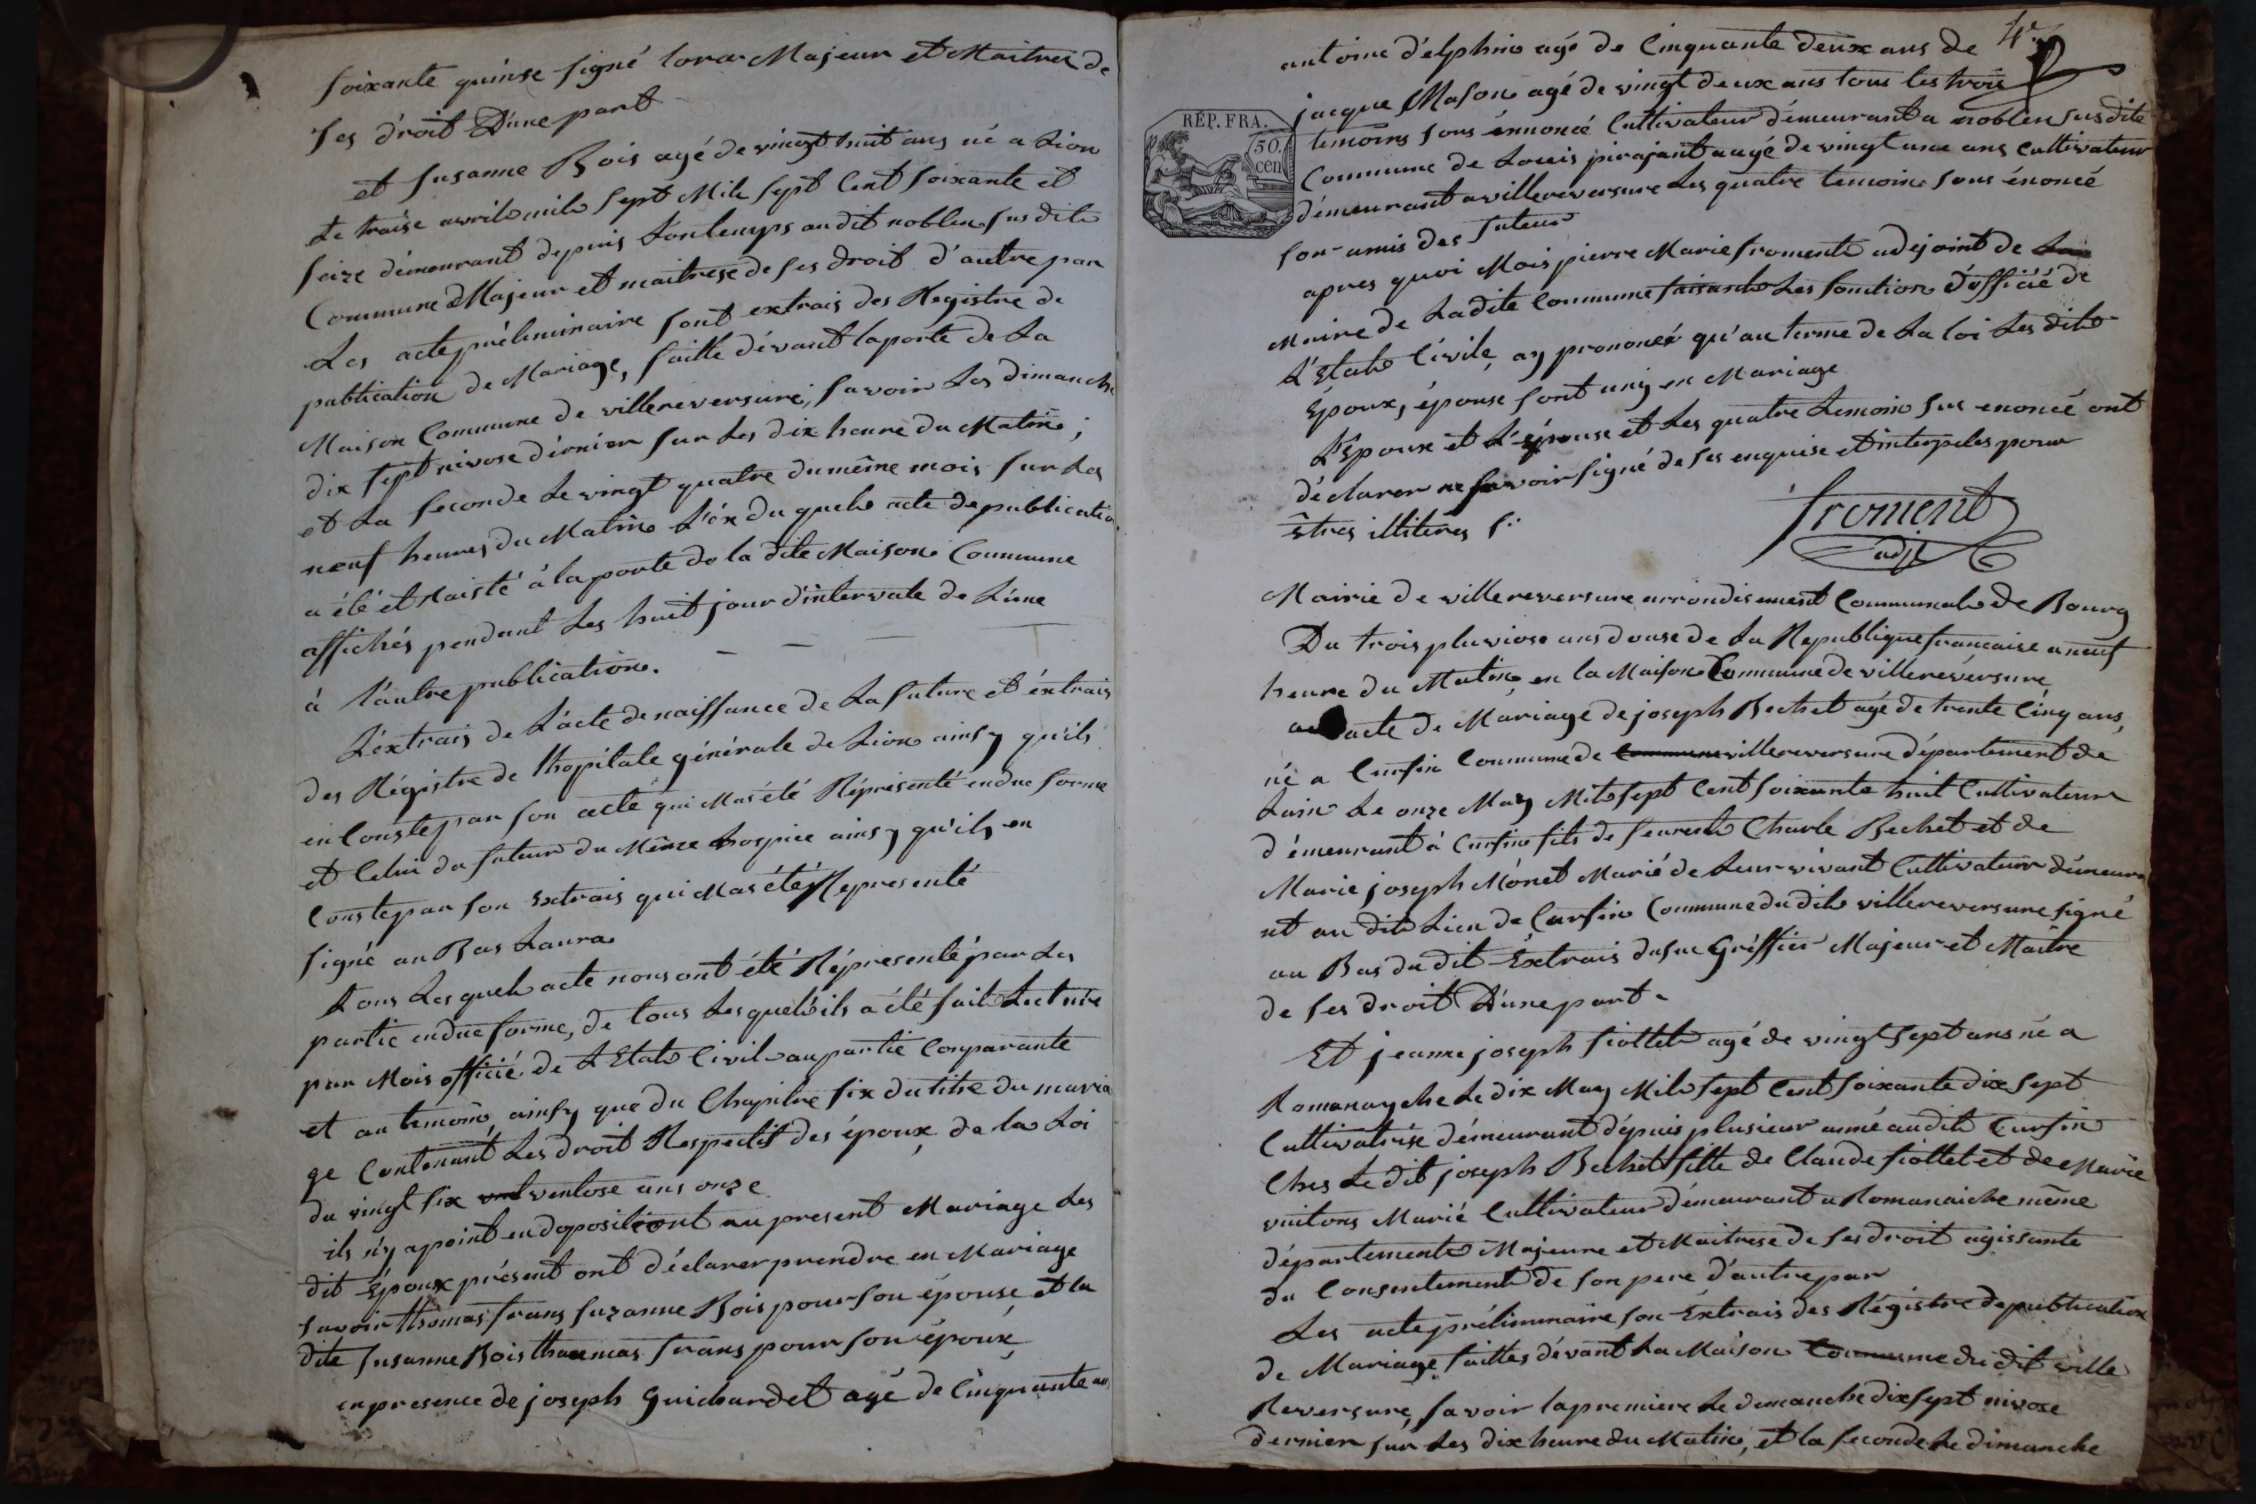 soixante quinse signé lora Majeur et Maitres de
ses droit D'une part
et susanne Bois agé de vingt huit ans né a Lion
Le traise avril mile sept Mile sept Cent soixante et
seize démeurant depuis Lontemps au dit noblen sus dite
Commune Majeur et maitrese de ses droit d'autre par
Les acte préliminaire sont extrais des Registre de
publication de Mariage, faitte dévant la porte de La
Maison Commune de villereversure, savoir Les dimanche
dix sept nivose dérnier sur Les dix heure du Matin ;
et La seconde Le vingt quatre du même mois sur Les
neuf heures du Matin L'éx du quele acte de publication
a été et Raisté à la porte de la dite Maison Commune
affichés pendant Les huit jour d'intervale de L'une
à l'autre publication. — — —
L'éxtrais de L'acte de naissance de La future et éxtrais
des Régistre de l'hopitale générale de Lion ainsy qu'ils
en Conste par son acte qui Mas été Réprésenté en due forme
et Celui du futeur du Même hospice ainsy qu'ils en
Conste par son extrais qui Mas été Représenté
signé au Bas Laura
Tous Les quels acte nous ont été Réprésenté par Les
partie en due forme, de tous Les quels ils a été fait Lecture
par Mois officié de L'Etat Civil au partie Comparante
et au temoin, ainsy que du Chapitre six du titre du maria
ge Contenant Les droit Respectif des époux de la Loi
du vingt six ventose ans onze
ils n'y a point en doposition au present Mariage Les
dit Epoux présent ont déclarer prendre en Mariage
savoir thomas frans suzanne Bois pour son épouse et la
dite susanne Bois thaumas frans pour son époux
en presence de joseph Guichardet agé de Cinquante an
antoine d'elphin agé de Cinquante deux ans de
jacque Mason agé de vingt deux ans tous les trois
temoins sous énnoncé Cultivateur démeurant a noblen susdite
Commune de Louis pirajant aagé de vingt une ans Cultivateur
démeurant a villereversure Les quatre temoin sous énoncé
son amis des futeur
apres quoi Mois pierre Marie froment adejoint de
Maire de Ladite Commune faisant Les fonction d'officié de
L'Etat Civile, ay prononcé qu'au terme de La loi Les dit
Epoux, épouse sont uniy en Mariage
L'Epoux et L'épouse et Les quatre temoin sus enoncé ont
déclarer ne savoir signé de ses enquise et interpeles pour
êtres illiteres
froment
adjt
Mairie de villereversure arrondisement Communale de Bourg
Du trois pluviose ans douse de La Republique francaise a neuf
heure du Matin, en la Maison Commune de villereversure
acte de Mariage de joseph Bechet agé de trente Cinq ans,
né a Cursin Commune de Commune villereversure département de
Lain Le onze May Mil sept Cent soixante huit Cultivateur
démeurant à Cursin fils de feu Charle Bechet et de
Marie joseph Mónet Marié de Leur vivant Cultivateur démeura
nt au dit Lieu de Cursin Commune du dit villereversure signé
au Bas du dit Extrais Greffier Majeur et Maitre
de ses droit D'une part
Et jeanne joseph fiottet agé de vingt sept ans né a
Romanayche Le dix May Mil sept Cent soixante dix sept
Cultivatrise démeurant dépuis plusieur anné au dit Cursin
Ches Le dit joseph Bechet fille de Claude fiottet et de Marie
vuitons Marié Cultivateur démeurant a Romanaiche même
département Majeure et Maitrese de ses droit agissante
du Consentement de son pere d'autre par
Les acte préliminaire son Extrais des Régistre de publication
de Mariage faittes dévant La Maison Commune du dit ville
Reversure, savoir la premiere Le dimanche dix sept nivose
dernier sur Les dix heure du Matin, et la seconde Le dimanche
RÉP. FRA.
50.
cen